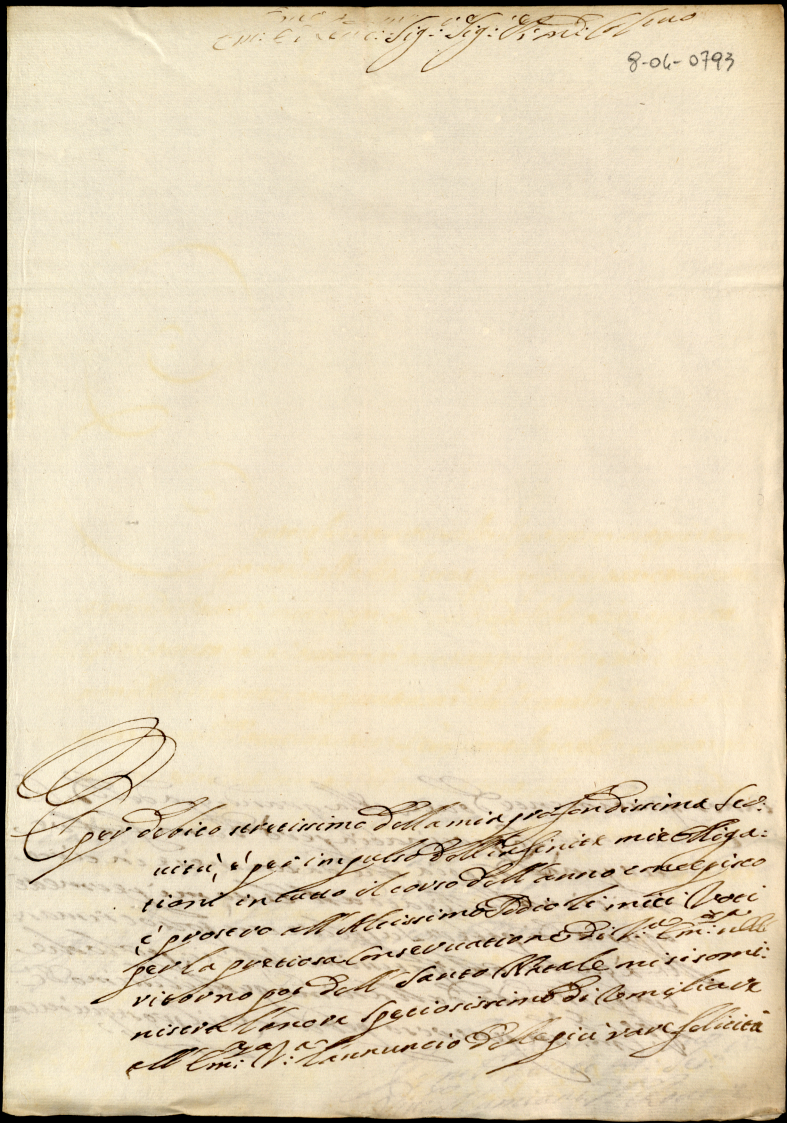 Em: e Rev: Sig:re Sig:re P'rone Col:mo
8-04-0793
per debito strettissimo della mia profondissima Ser:
vitù, e per impulso dell'infinite mie obliga:
tioni in tutto il corso dell'anno
e prostro all'Altissimo Iddio li miei Voti
per la pretiosa Conservatione di V:a Em:za nell
ritorno poi dell Santo Natale misisomi:
nistra l'honore speciosissimo di Umigliare
all'Em:za V:a l'annuncio delle più rare felicità